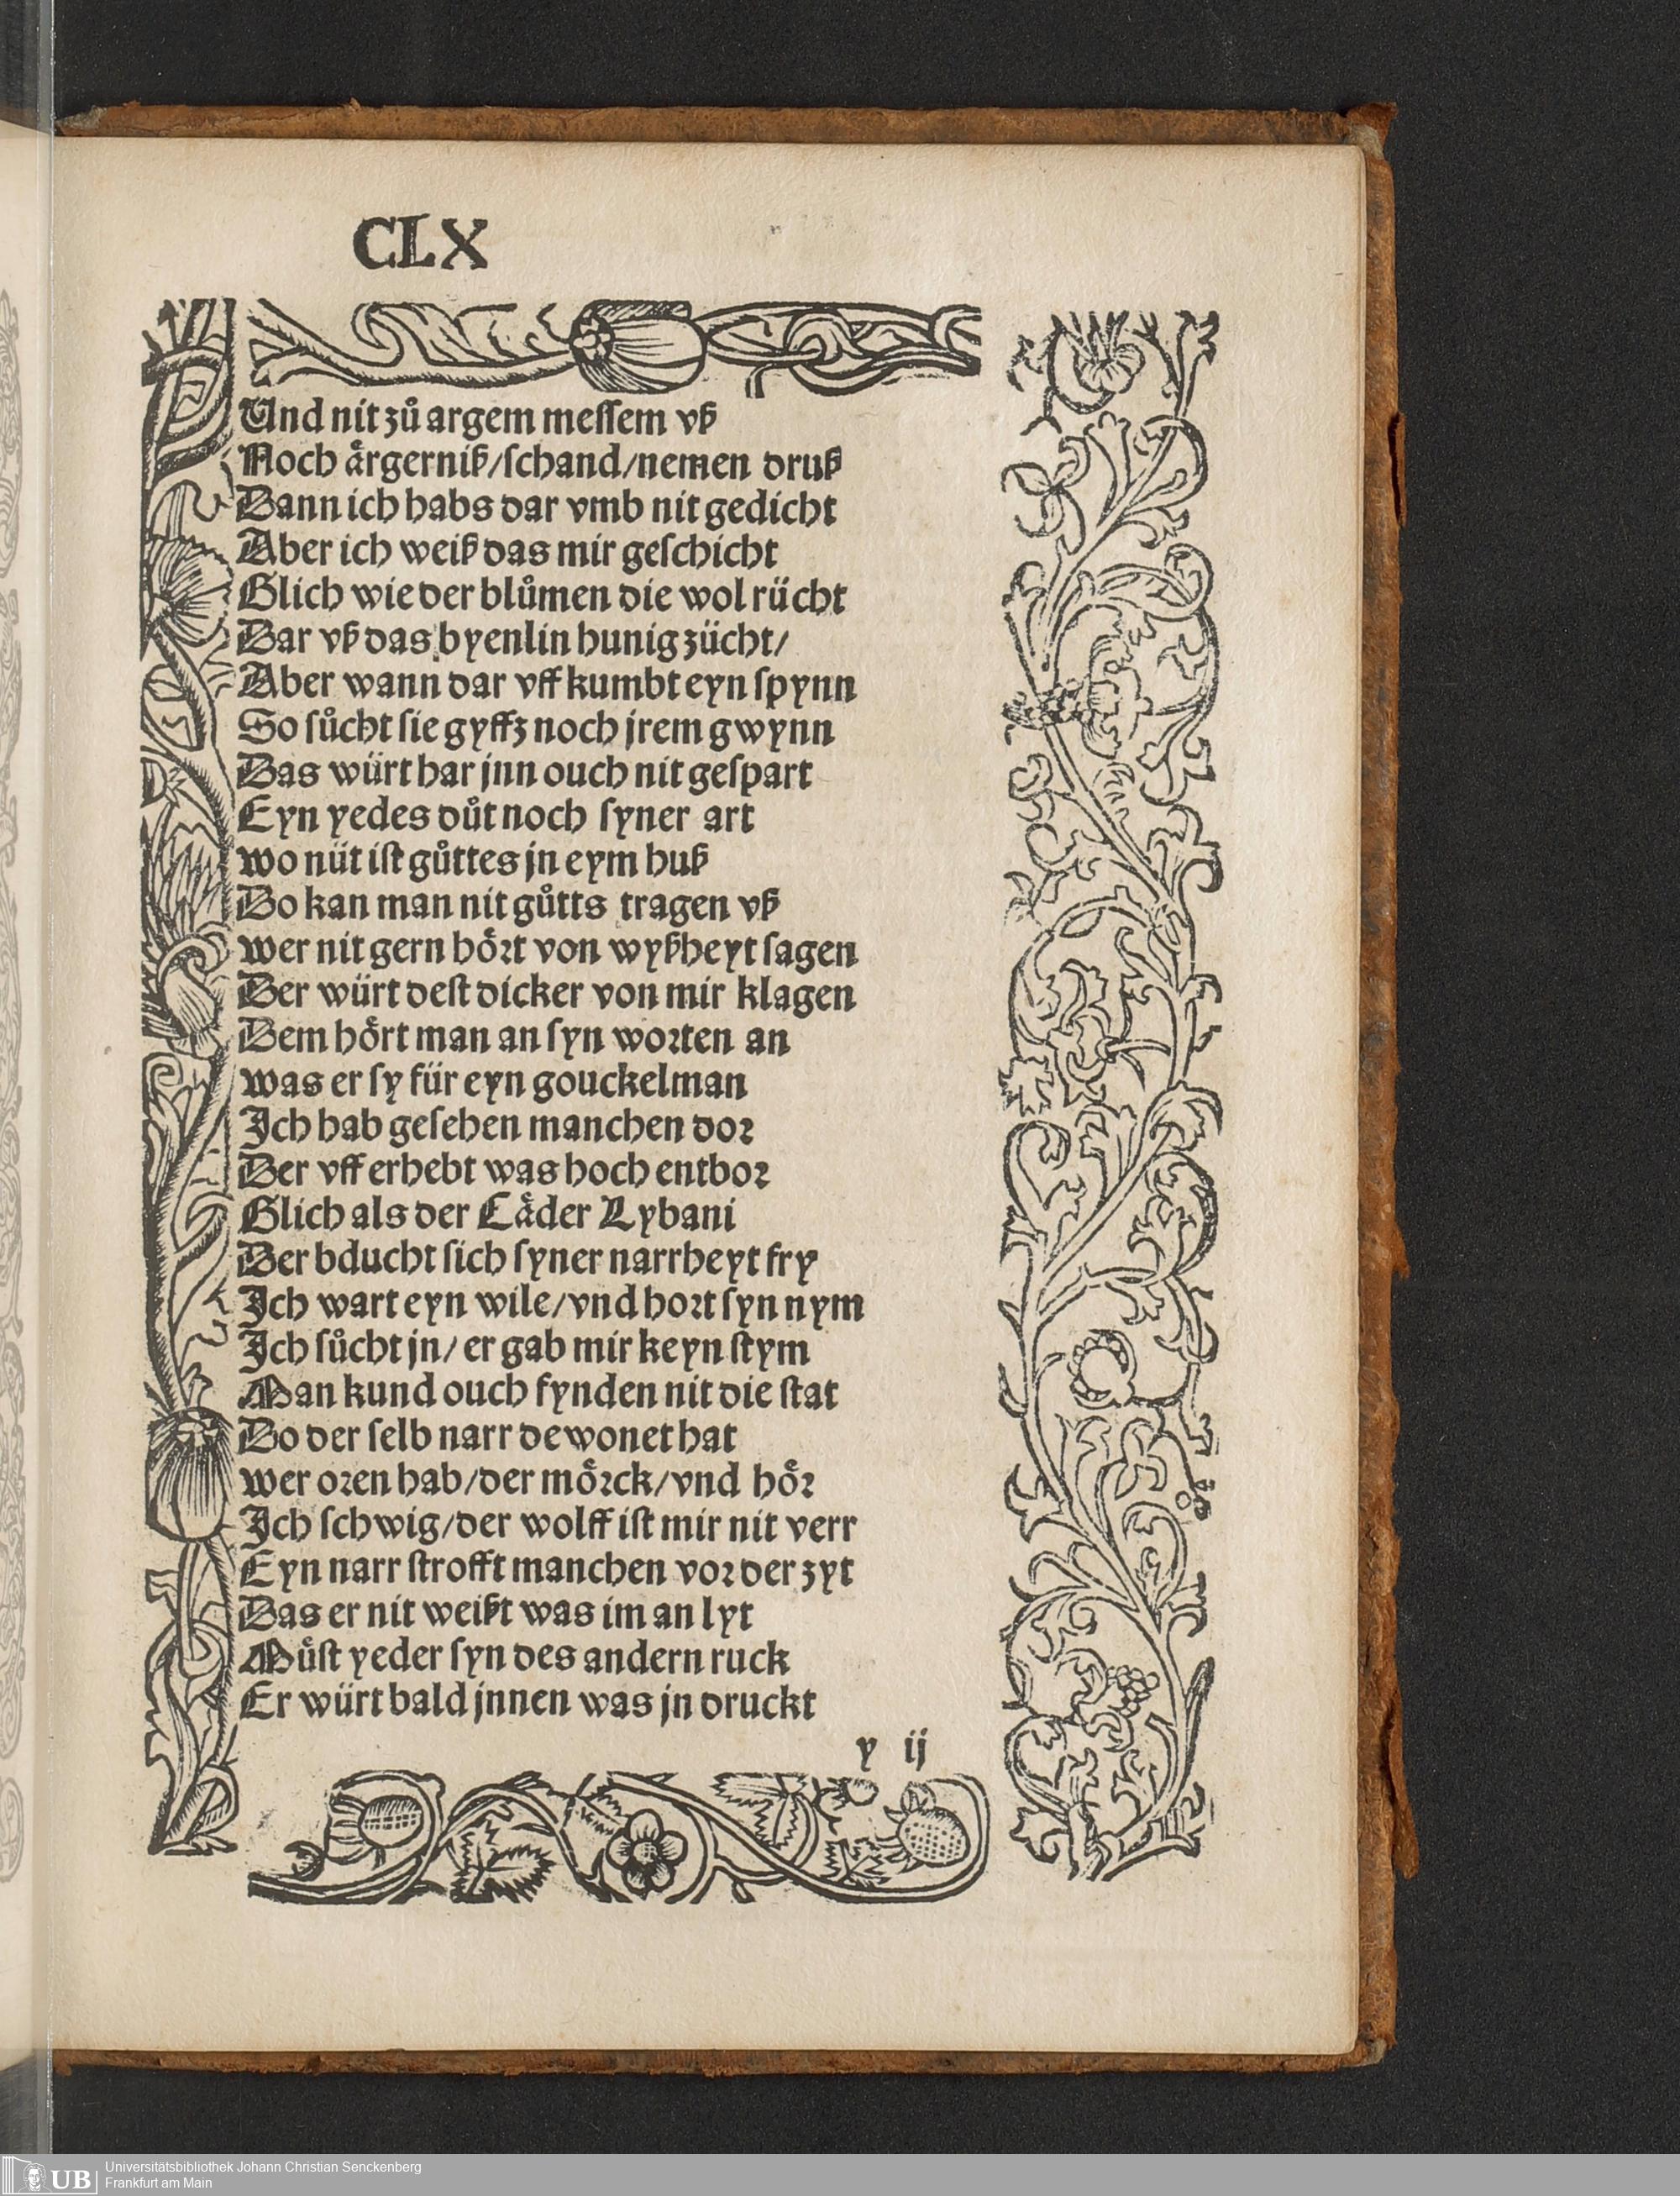 CLX
Und nit zuͦ argem messem vß
Noch aͤrgerniß/schand/nemen druß
Dann ich habs dar vmb nit gedicht
Aber ich weiß das mir geschicht
Glich wie der bluͦmen die wol rücht
Dar vß das byenlin hunig zücht/
Aber wann dar vff kumbt eyn spynn
So suͦcht sie gyfft noch jrem gwynn
Das würt har jnn ouch nit gespart
Eyn yedes duͦt noch syner art
wo nüt ist guͦttes jn eym huß
Do kan man nit guͦtts tragen vß
wer nit gern hoͤrt von wyßheyt sagen
Der würt dest dicker von mir klagen
Dem hoͤrt man an syn worten an
was er sy für eyn gouckelman
Ich hab gesehen manchen dor
Der vff erhebt was hoch entbor
Glich als der Caͤder Lybani
Der bducht sich syner narrheyt fry
Ich wart eyn wile/vnd hort syn nym
Ich suͦcht jn/ er gab mir keyn stym
Man kund ouch fynden nit die stat
Do der selb narr dewonet hat
wer oren hab/der moͤrck/vnd hoͤr
Ich schwig/der wolff ist mir nit verr
Eyn narr strofft manchen vor der zyt
Das er nit weißt was im an lyt
Muͦst yeder syn des andern ruck
Er würt bald jnnen was jn druckt
y ij
UB
Universitätsbibliothek Johann Christian Senckenberg
Frankfurt am Main